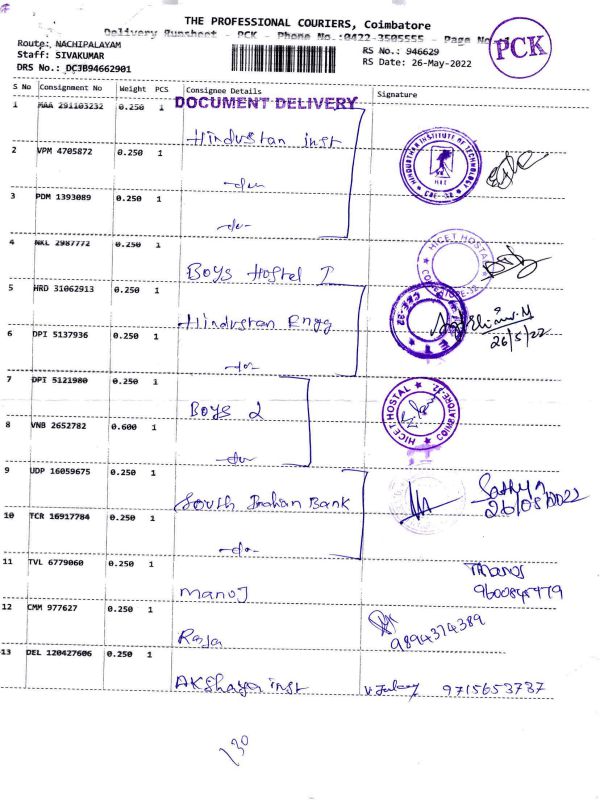 THE PROFESSIONAL COURIERS, Coimbatore
Delivery Runsheet - PCK - Phone No.:0422-3505555 - Page No.
PCK
Route: NACHIPALAYAM
Staff: SIVAKUMAR
DRS No.: DCJB94662901
RS No.: 946629
RS Date: 26-May-2022
S No Consignment No Weight PCS Consignee Details Signature
DOCUMENT DELIVERY
1 MAA 291103232 0.250 1 Hindustan inst
HINDUSTHAN INSTITUTE OF TECHNOLOGY
HIT
CBE-32
2 VPM 4705872 0.250 1 -do-
3 PDM 1393089 0.250 1 -do-
4 NKL 2987772 0.250 1 Boys Hostel I
HICET HOSTAL
COIMBATORE-32
5 HRD 31062913 0.250 1 Hindustan Engg
CBE-32
26/5/22
6 DPI 5137936 0.250 1 -do-
7 DPI 5121980 0.250 1 Boys 2
HICET HOSTAL
COIMBATORE-32
8 VNB 2652782 0.600 1 -do-
9 UDP 16059675 0.250 1 South Indian Bank
26/05/2022
10 TCR 16917784 0.250 1 -do-
11 TVL 6779060 0.250 1 Manoj
12 CMM 977627 0.250 1 Raja
9894374389
13 DEL 120427606 0.250 1 Akshaya inst
9715653737
130